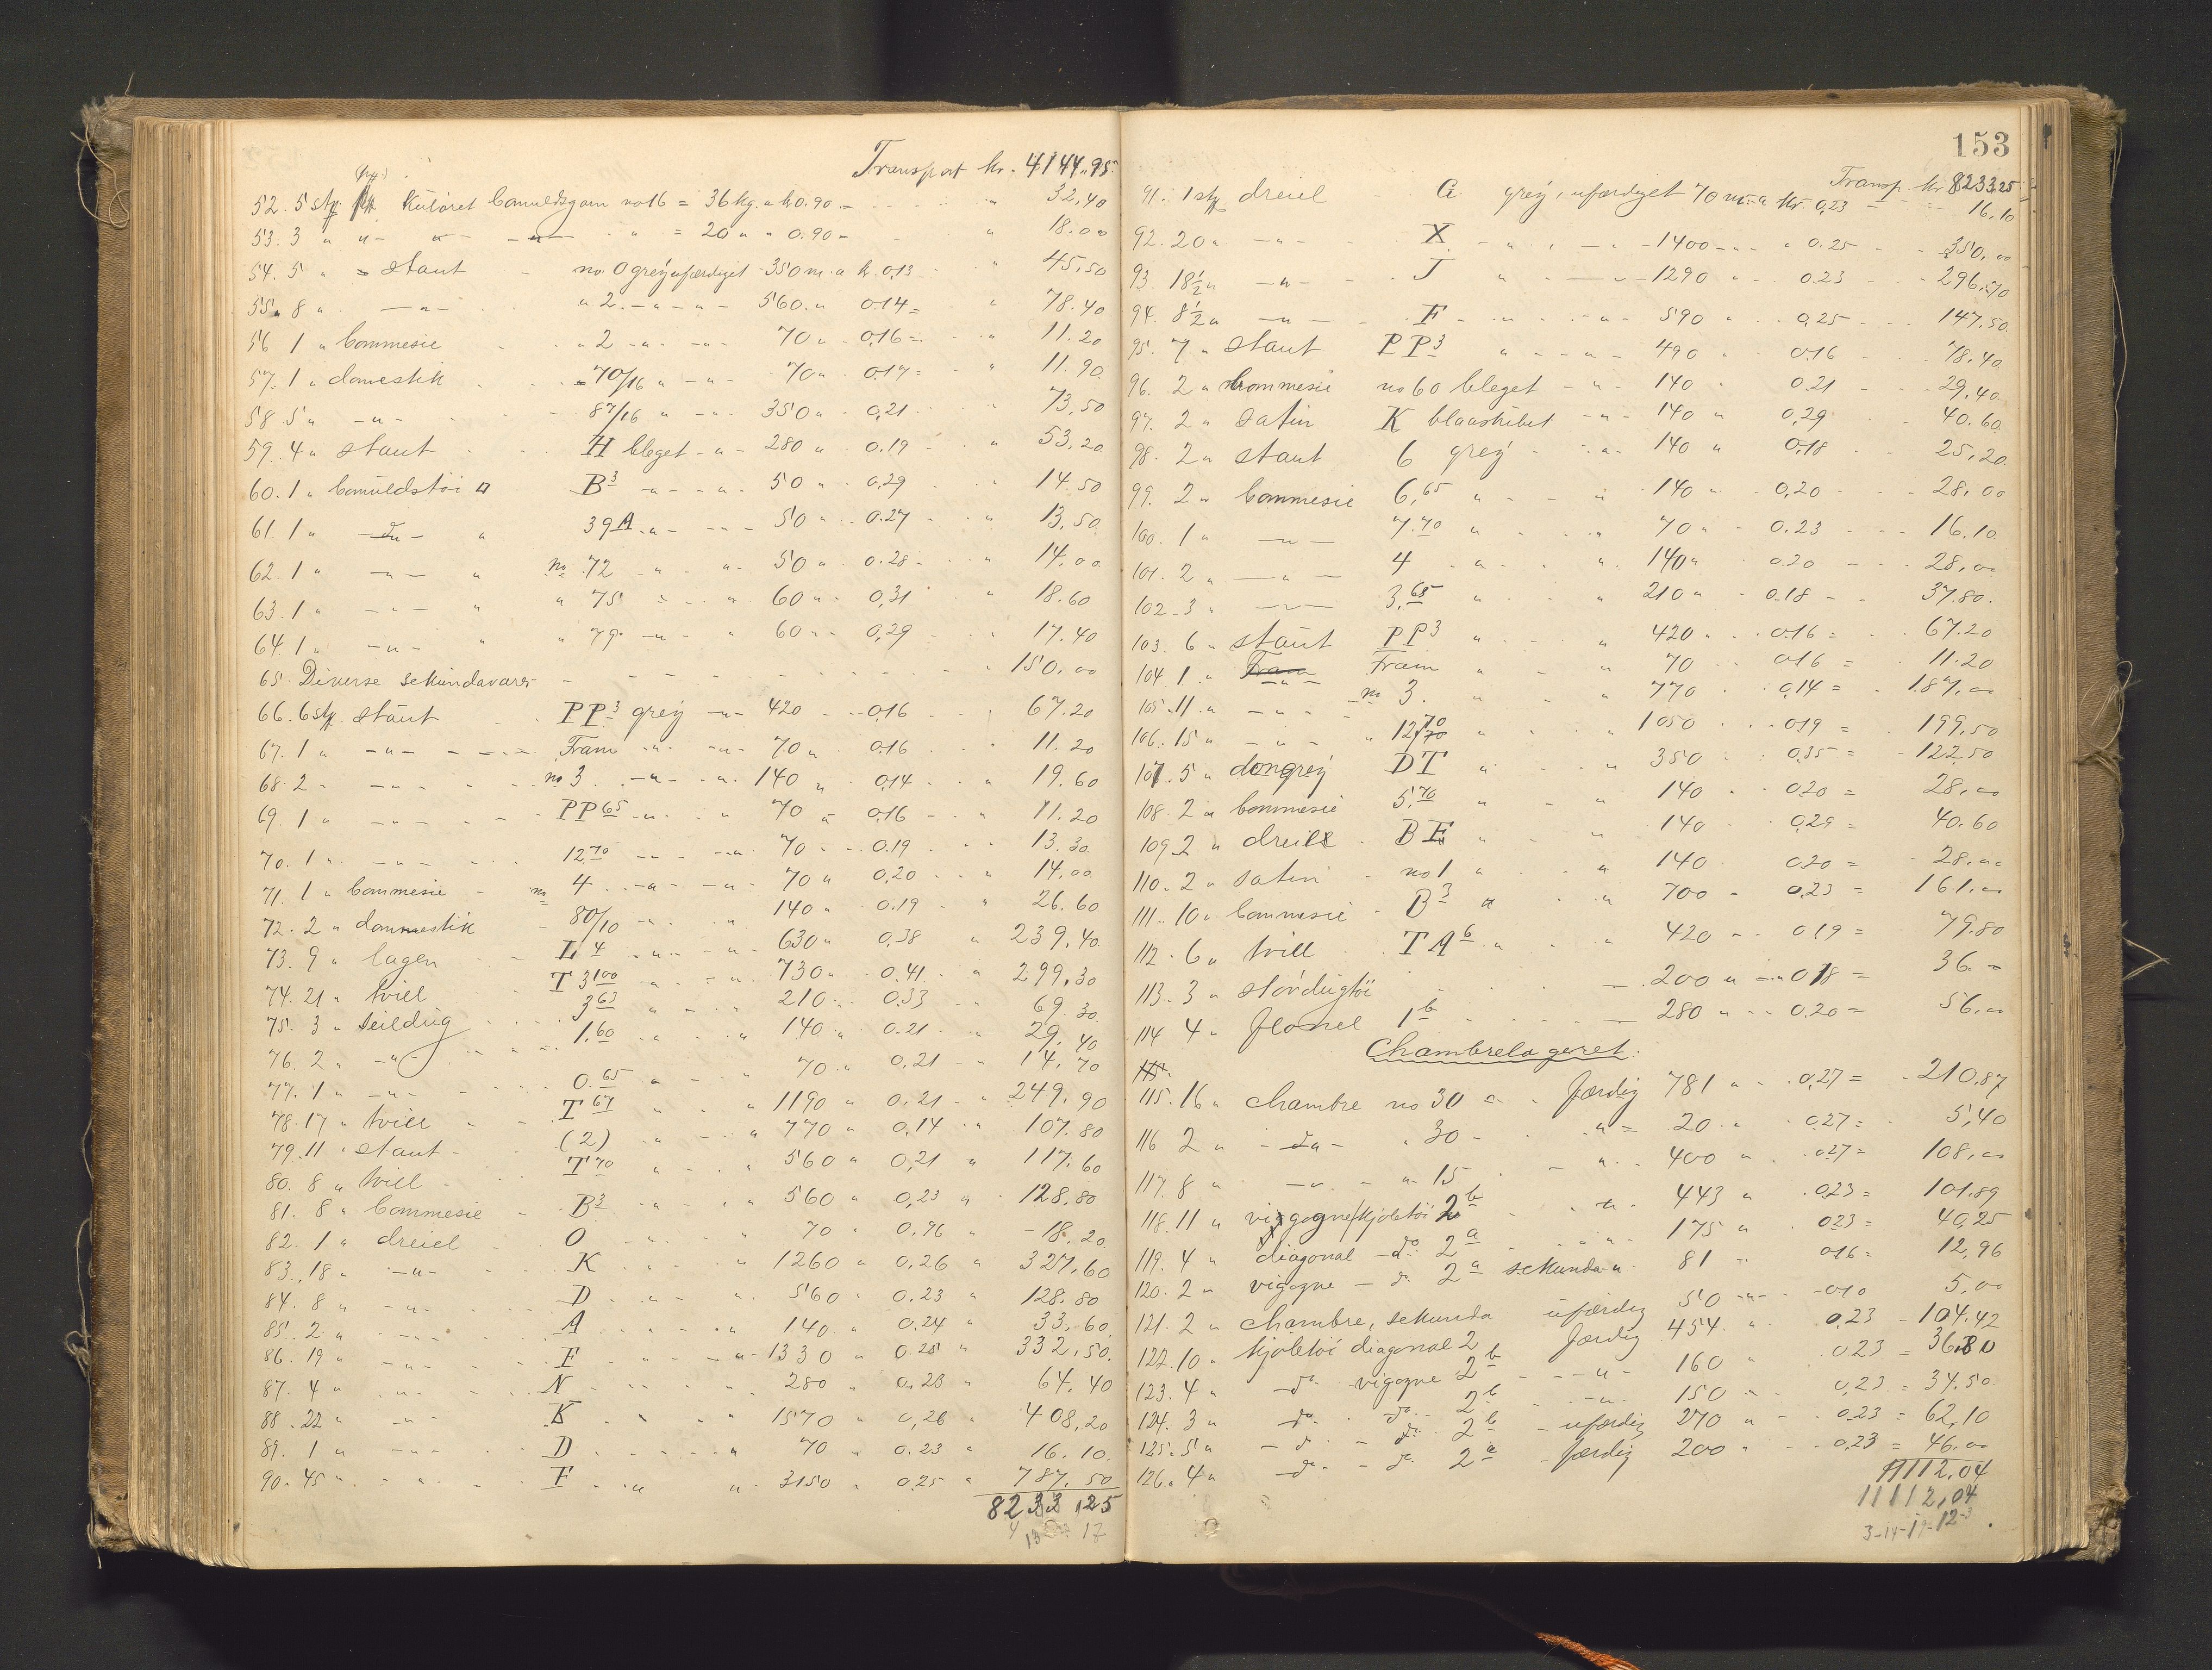 Transport kr. 4144.95
52. 5 stk. kulöret bomuldsgarn no 16 = 36 kg. a kr 0.90 = " 32,40
53. 3 " " - " - " - " = 20 " " 0.90 - " 18.00
54. 5 " staut - no. 0 grey ufærdiget - 350 m. a kr. 0,13 - " 45,50
55. 8 " - " - " 2. - " - " - 560. " 0.14 = " 78.40
56 1 " bommesie " 2 - " - " - 70 " 0,16 = " 11.20
57. 1 " domestik 70/16 " - " - 70 " 0.17 = " 11.90
58 5 " - " - 87/16 " - " - 350 " 0,21 " 73,50
59. 4 " staut H bleget - " - 280 " 0.19 " 53.20
60. 1 " bomuldstöi " B3 - " - " - 50 " 0,29 " 14.50
61. 1 " - do - " 39 A - " - " - 50 " 0.27 " 13,50
62. 1 " - " - " no 72 - " - " - 50 " 0.28 - " 14,00
63. 1 " - " - " " 75 " 60 " 0,31 " 18.60
64. 1 " - " - " " 79 - " - " 60 " 0,29 " 17.40
65. Diverse sekundavarer - - - - " 150,00
66. 6 stk. staut PP3 grey - " - 420 - 0.16 67.20
67. 1 " - " - Fram - " - " - 70 " 0.16 " 11.20
68. 2 - - " - no 3 - " - " - 140 " 0,14 " 19.60
69. 1 " - " - PP 65 - " - " 70 " 0.16 " 11.20
70. 1 " - " - 12.70 - " - " 70 " 0.19 " 13.30
71. 1 " bommesie - no 4 - " - " - 70 " 0,20 " 14.00
72. 2 " dommestik - 80/10 - " - " 140 " 0.19 " 26.60
73. 9 " lagen L 4 - " - " - 630 " 0,38 " 239,40
74. 21 " tvill T 3 100 - " - " 730 " 0.41 " 299,30
75. 3 " seildug 3 63 " " 210 " 0.33 " 69.30
76. 2 " - " - 1.60 " " 140 " 0.21 " 29,40
77. 1 " - " - 0.65 " " 70 " 0,21 " 14,70
78. 17 " tvill T 67 " " 1190 " 0,21 " 249,90
79. 11 " staut - (2) " " 770 " 0,14 " 107.80
80. 8 " tvill - T 70 " " 560 " 0,21 " 117.60
81. 8 " bommesie - B3 " " 560 " 0,23 " 128,80
82. 1 " dreiel O " " 70 " 0,26 " 18.20
83. 18 " - " - K " " 1260 " 0,26 " 327,60
84. 8 " - " - D - " - " 560 " 0.23 " 128.80
85. 2 " - " - A " " 140 " 0.24 " 33,60
86. 19 " - " - F " - " - 1330 " 0.25 " 332,50
87. 4 " - " - N " " 280 " 0.23 " 64,40
88. 22 " - " - K " " 1570 " 0,26 " 408,20
89. 1 " - " - D " " 70 " 0.23 " 16.10
90. 45 " - " - F " " 3150 " 0.25 " 787,50
8233,25
153
Transp. kr 8233.25
91. 1 stk dreiel - G grey, ufærdiget 70 m. a kr. 0,23 - 16.10
92. 20 " - " - X - " - " - 1400 - " - " 0.25 350,00
93. 18 1/2 " - " - J " - 1290 " 0.23 296,70
94. 8 1/2 " - " - F - " - " - 590 " 0,25 147,50
95. 7 " staut PP3 " - " - 490 " 0.16 78.40
96. 2 " bommesie no 60 bleget - " - 140 " 0.21 29.40
97. 2 " satin K blaastribet - " - 140 " 0,29 40.60
98. 2 " staut 6 grey - " - 140 " 0,18 25,20
99. 2 " bommesie 6,65 " - " 140 " 0,20 28,00
100. 1 " - " - 7.70 " " 70 " 0.23 16,10
101. 2 " - " - 4 " " 140 " 0.20 28,00
102. 3 " - " - 3.65 " " 210 " 0.18 37.80.
103. 6 " staut PP3 " " 420 " 0.16 = 67.20
104. 1 " - " - Fram " " 70 0.16 = 11.20
105. 11 " - " - no 3. " " 770 0,14 = 187,00
106. 15 " - " - " 12 70 " " 1050 0.19 = 199,50
107. 5 " dongrey DT " " 350 0.35 = 122,50
108. 2 " bommesie 5.70 " - " 140 0.20 = 28,00
109. 2 " dreiel BE " " 140 0,29 = 40.60
110. 2 " satin - no 1 " " 140 0,20 = 28,00
111. 10 " bommesie - B3 " " 700 " 0,23 = 161,00
112. 6 " tvill T A6 " " 420 " 0,19 = 79.80
113. 3 " stordugtöi - 200 " - " 0.18 = 36.-
114 4 " flonel 1b - 280 " - 0,20 = 56,00
Chambrelageret.
115. 16 " chambre no 30 - færdig 781 " - 0,27 = 210,87
116 2 " - do - " 30 - " = 20 " 0.27 = 5,40
117. 8 " - " - " 15 - " - 400 " 0.27 = 108,00
118. 11 " vigogne/kjoletöi 2b - " - 443 " 0.23 = 101.89
119. 4 " diagonal - do. 2a - " - 175 " 0.23 = 40,25
120. 2 " vigogne - do. 2a sekunda " 81 " 0.16 = 12,96
121. 2 " chambre, sekunda ufærdig 50 - " - 0.10 5,00
122. 10 " kjoletöi diagonal 2 færdig 454 " 0.23 - 104.42
123. 4 " - do - vigogne 2b - " - 160 " 0.23 = 36.80
124. 3 " - do. - do. - 2b - " - 150 " 0,23 = 34.50
125. 5 " - do. - do. 2b - ufærdig 270 " - 0.23 = 62,10
126. 4 " - do. - do. 2a - færdig 200 " - 0,23 = 46.00
11112.04
11112,04